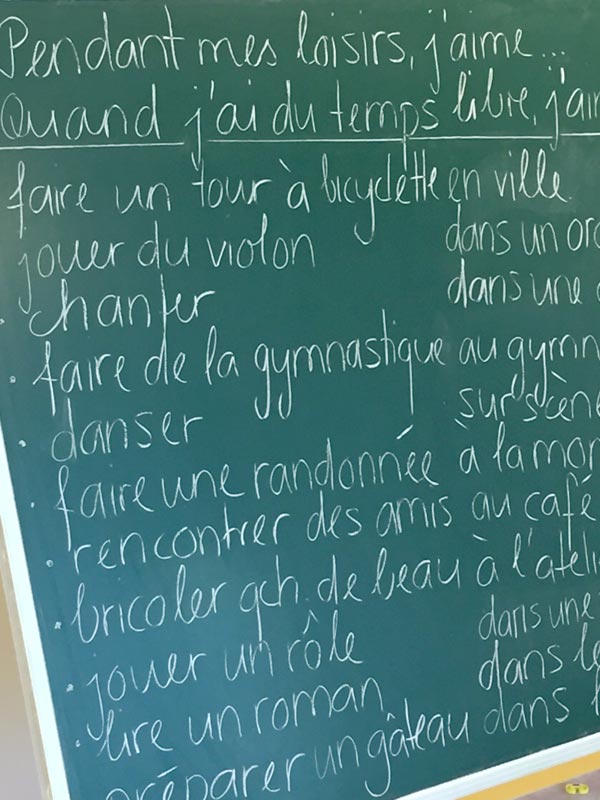 Pendant mes loisirs, j'aime...
Quand j'ai du temps libre, j'air
faire un tour à bicyclette en ville.
jouer du violon dans un orc
chanter dans une
faire de la gymnastique au gymn
danser sur scène
faire une randonnée à la mon
rencontrer des amis au café
bricoler qch. de beau à l'ateli
jouer un rôle dans une
lire un roman dans le
préparer un gâteau dans